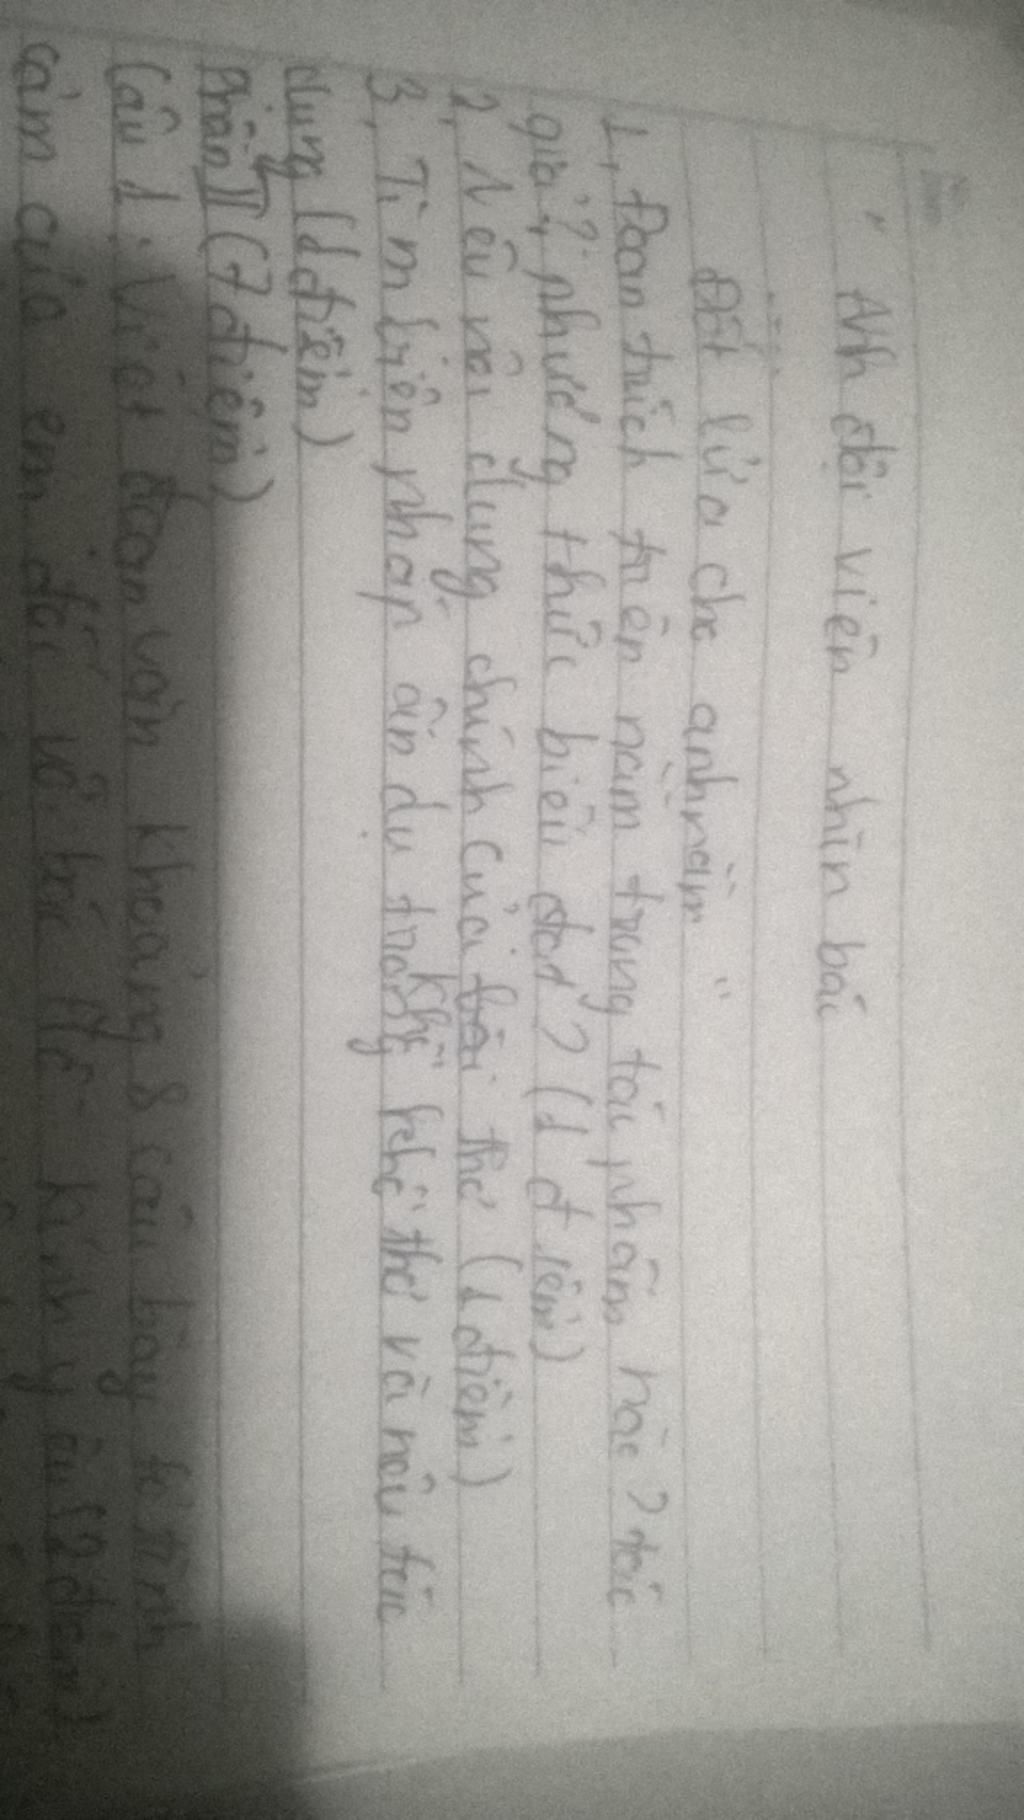 " Anh đội viên nhìn bác
.....
Đốt lửa cho anh nằm "
1, Đoạn trích trên nằm trong tác phẩm nào? tác
giả ?, phương thức biểu đạt? (1 điểm)
2, Nêu nội dung chính của khổ thơ (1 điểm)
3, Tìm biện pháp ẩn dụ trong khổ thơ và nêu tác
dụng (1 điểm)
Phần II (7 điểm)
Câu 1: Viết đoạn văn khoảng 8 câu bày tỏ tình
cảm của em đối với bác Hồ kính yêu (2 điểm)